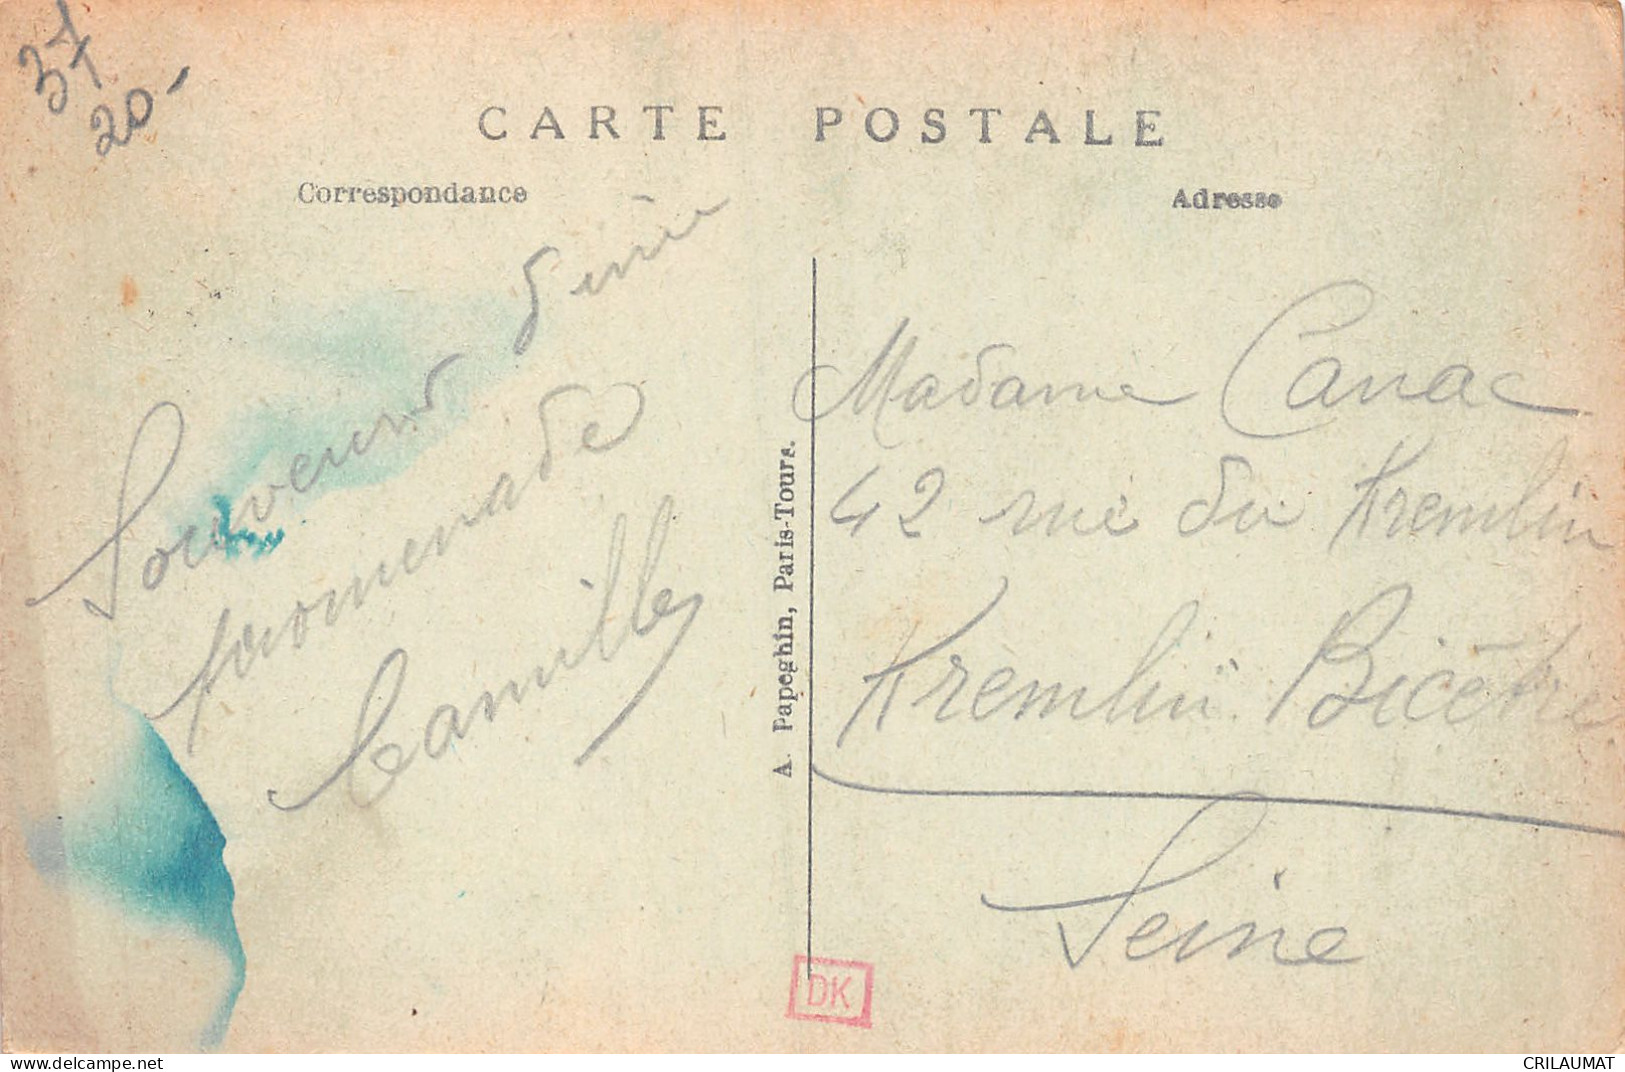 37
20-
CARTE POSTALE
Correspondance
Adresse
Souvenir d'une
promenade
Camille
A. Papeghin, Paris-Tours.
Madame Canac
42 rue du Kremlin
Kremlin Bicêtre
Seine
DK
delcampe.net
CRILAUMAT